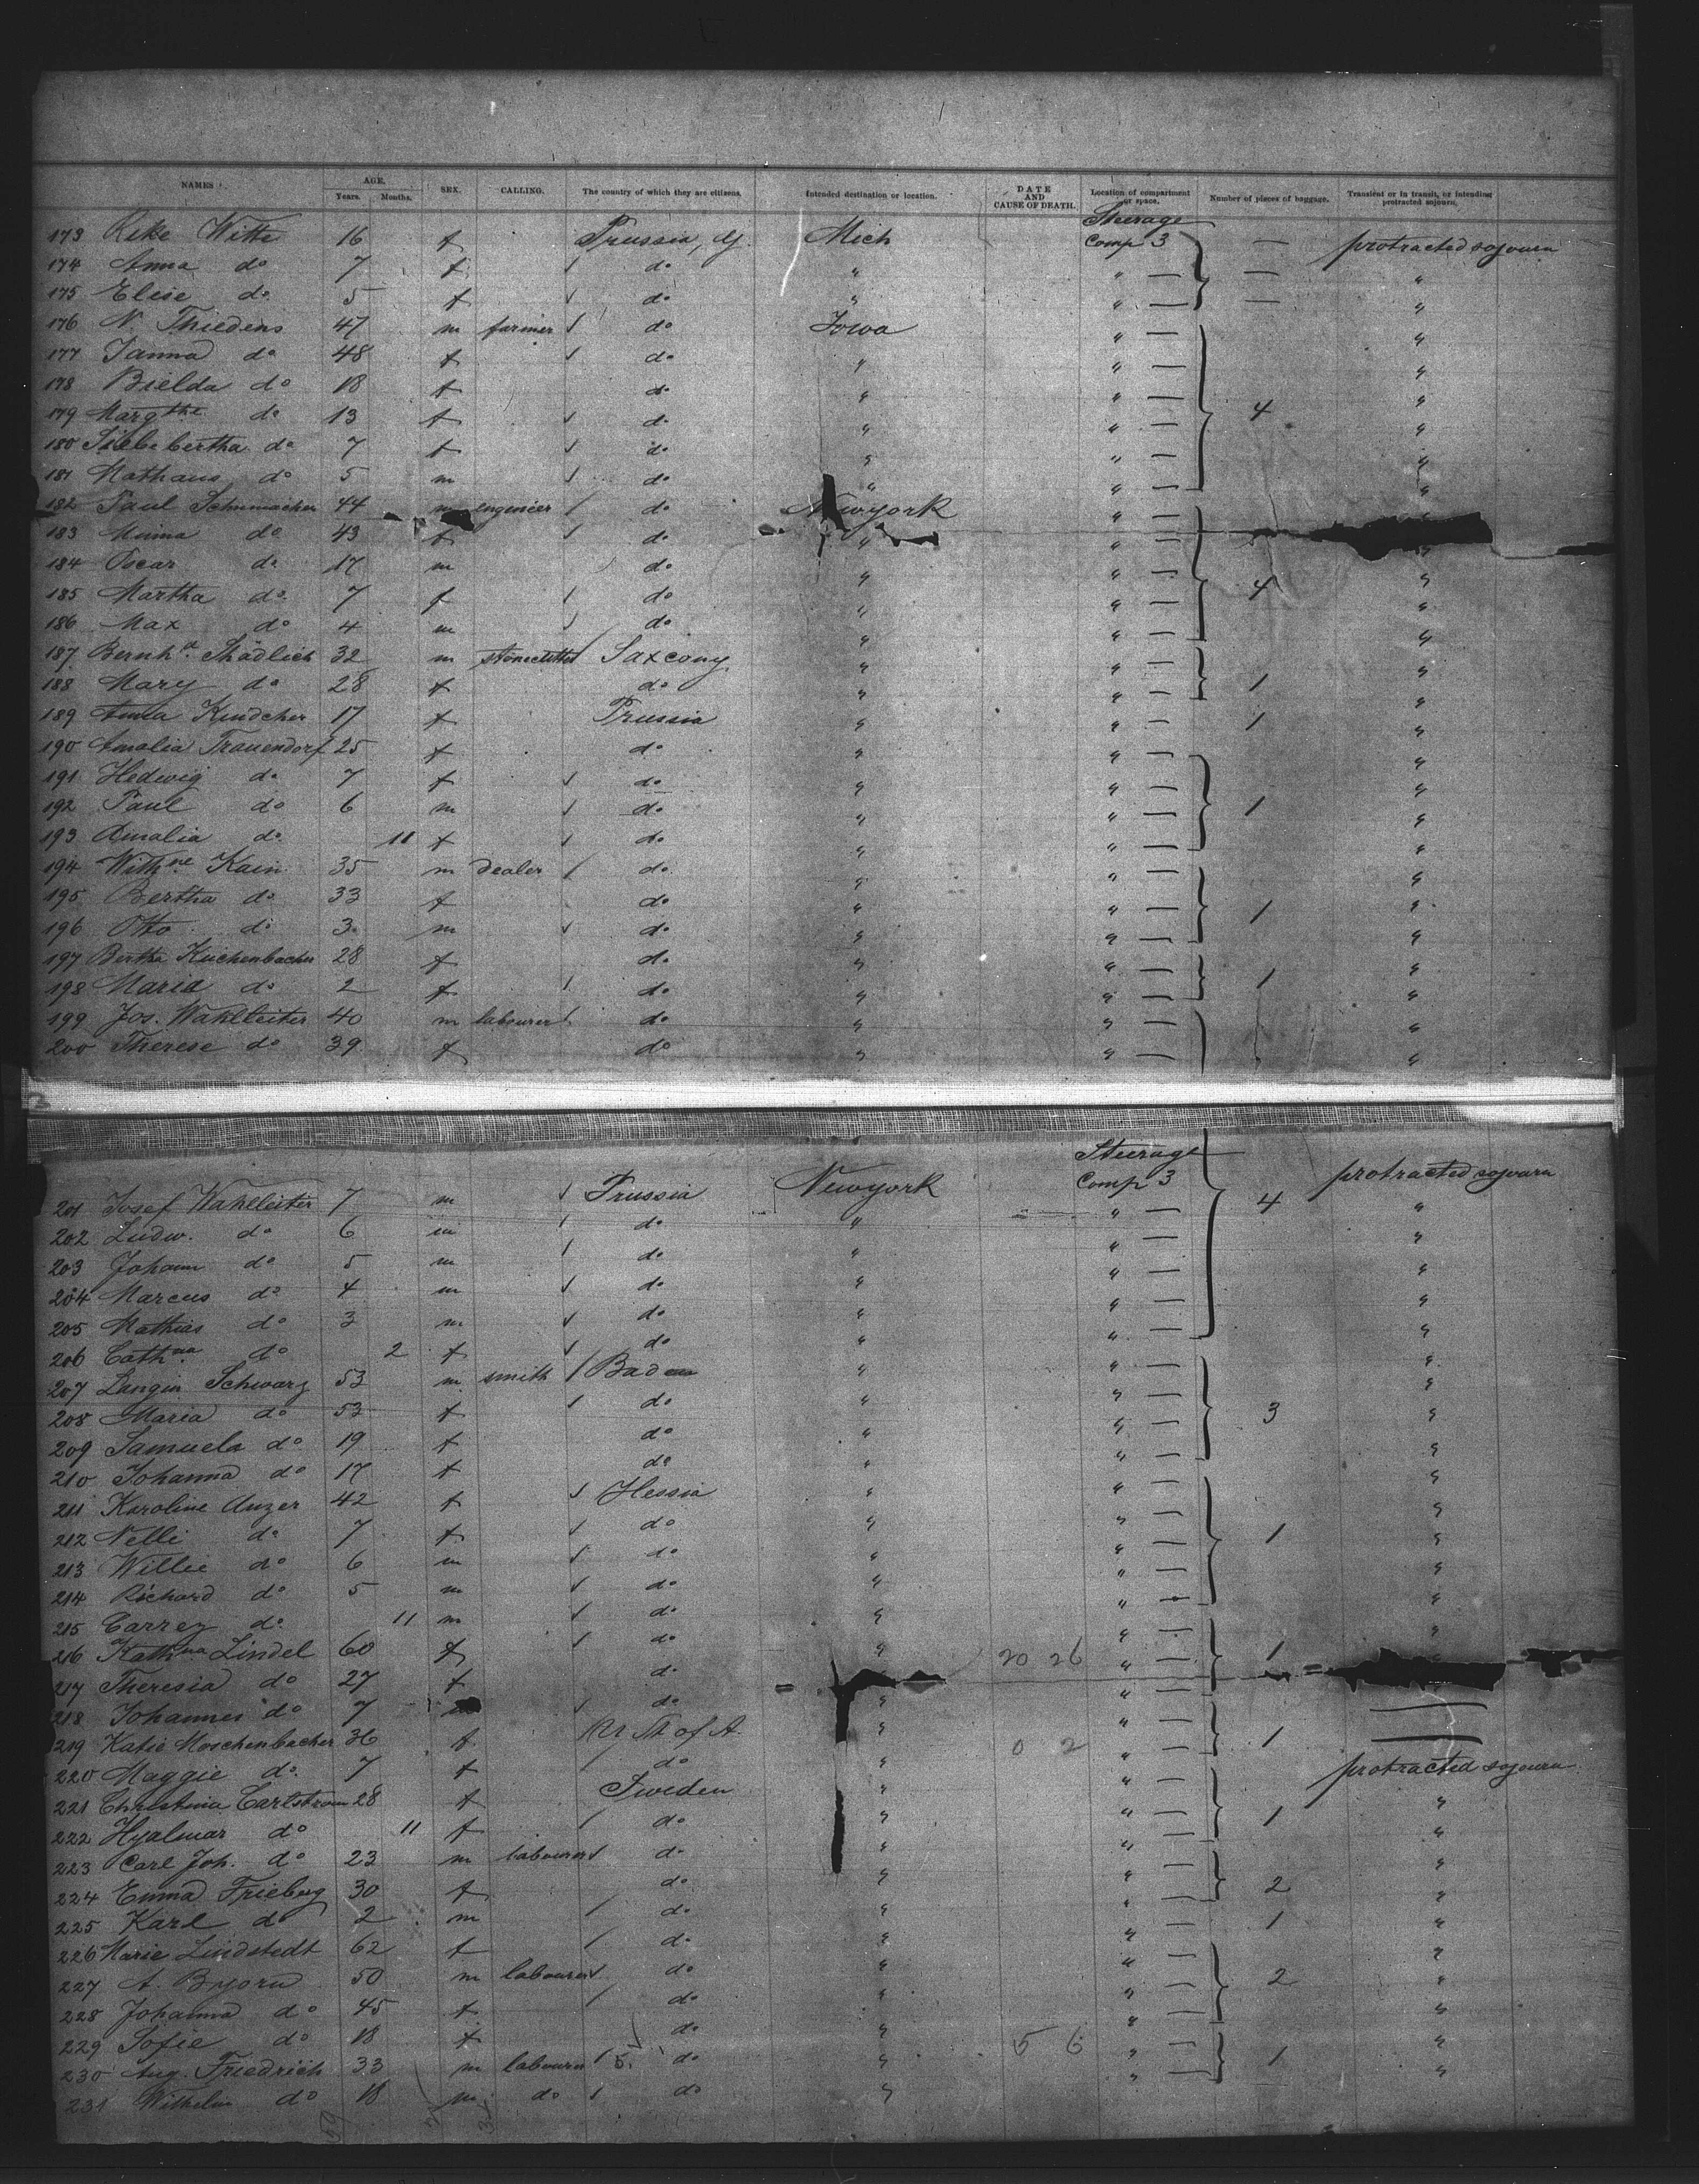 NAMES. AGE. SEX. CALLING. The country of which they are citizens. Intended destination or location. DATE AND CAUSE OF DEATH. Location of compartment or space. Number of pieces of baggage. Transient or in transit, or intending protracted sojourn.
Years. Months.
Steerage
173 Rike Witte 16 f Prussia, Mich Comp 3 — protracted sojourn
174 Anna do 7 f do " " — — "
175 Elise do 5 f do " " — — "
176 N. Thiedens 47 m farmer do Iowa " — "
177 Janna do 48 f do " " — "
178 Bielda do 18 f do " " — "
179 Margthe do 13 f do " " — 4 "
180 Siebebertha do 7 f do " " — "
181 Mathaus do 5 m do " " — "
182 Paul Schumacher 44 m engenier do Newyork " — "
183 Minna do 43 f do " " — "
184 Oscar do 17 m do " " — "
185 Martha do 7 f do " " — 4 "
186 Max do 4 m do " " — "
187 Bernhd. Thädlich 32 m stonecutter Saxcony " " — "
188 Mary do 28 f do " " — 1 "
189 Anna Kindcher 17 f Prussia " " — 1 "
190 Amalia Trauendorf 25 f do " " — "
191 Hedwig do 7 f do " " — "
192 Paul do 6 m do " " — 1 "
193 Amalia do 11 f do " " — "
194 Withne Kain 35 m dealer do " " — "
195 Bertha do 33 f do " " — 1 "
196 Otto do 3 m do " " — "
197 Bertha Kuchenbacher 28 f do " " — "
198 Maria do 2 f do " " — 1 "
199 Jos. Wahlleiter 40 m labourer do " " — "
200 Therese do 39 f do " " — "
Steerage
201 Josef Wahlleiter 7 m Prussia Newyork Comp 3 4 protracted sojourn
202 Ludw. do 6 m do " " — "
203 Johann do 5 m do " " — "
204 Marcus do 4 m do " " — "
205 Mathias do 3 m do " " — "
206 Cathna do 2 f do " " — "
207 Langin Schwarz 53 m smith Baden " " — "
208 Maria do 53 f do " " — 3 "
209 Samuela do 19 f do " " — "
210 Johanna do 17 f do " " — "
211 Karoline Anzer 42 f Hessia " " — "
212 Nelli do 7 f do " " — 1 "
213 Willie do 6 m do " " — "
214 Richard do 5 m do " " — "
215 Carrey do 11 m do " " — "
216 Kathna Lindel 60 f do " 20 26 " — 1 "
217 Theresia do 27 f do " " —
218 Johannes do 7 do " " —
219 Katie Moschenbacher 36 f St of A. " 0 2 " — 1
220 Maggie do 7 f do " " — protracted sojourn
221 Christina Carlstrom 28 f Sweden " " — "
222 Hyalmar do 11 f do " " — 1 "
223 Carl Joh. do 23 m labourer do " " — "
224 Emma Frieberg 30 f do " " — 2 "
225 Karl do 2 m do " " — 1 "
226 Marie Lindstedt 62 f do " " — "
227 A. Bryorn 50 m labourer do " " — 2 "
228 Johanna do 45 f do " " — "
229 Sofie do 18 f do " 5 6 " — "
230 Aug. Friedrich 33 m labourer 5 do " " — 1 "
231 Wilhelm do 18 m do do "